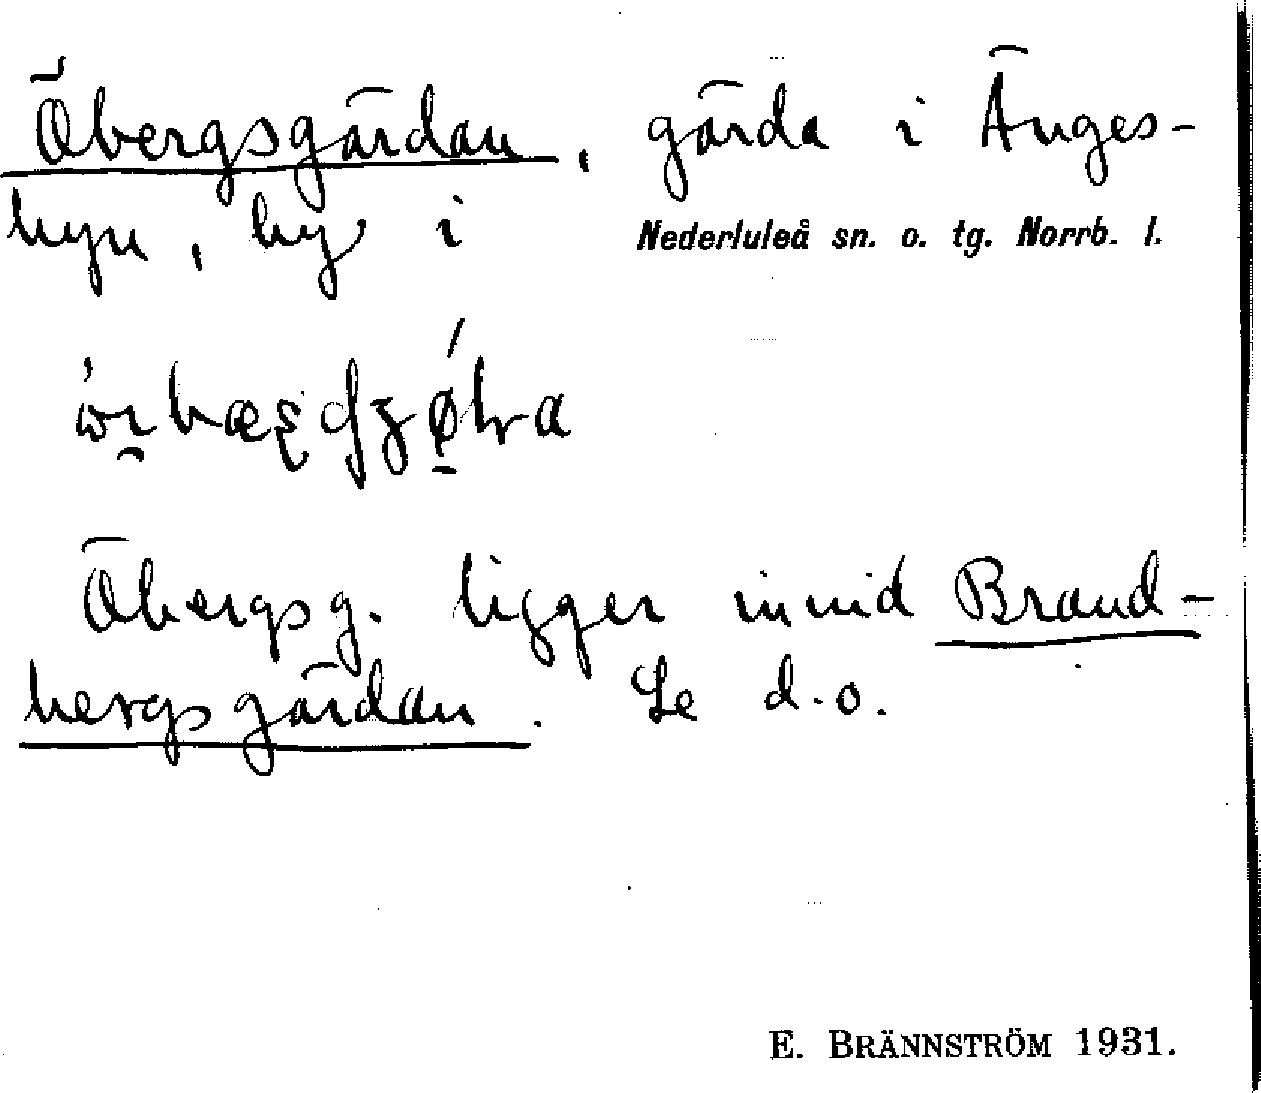 Öbergsgärdan, gärda i Änges-
byn, by i Nederluleå sn. o. tg. Norrb. l.
Öbergsg. ligger invid Brand-
bergsgärdan. Se d.o.
E. BRÄNNSTRÖM 1931.